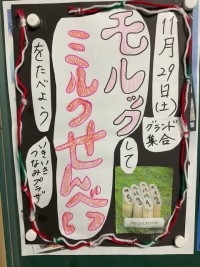 11月29日(土)
グランド集合
モルックして
ミルクせんべい
をたべよう
いきいき
つなみプラザ